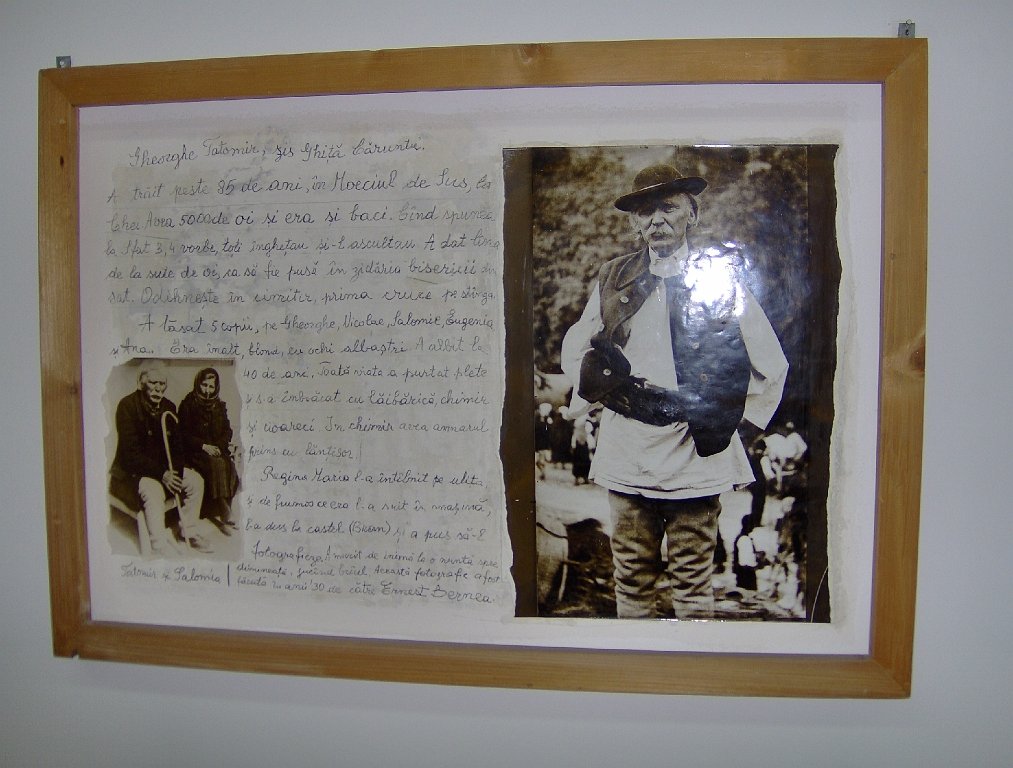 Gheorghe Tatomir, zis Ghiță Căruntu.
A trăit peste 85 de ani, în Moeciul de Sus, la
Chei. Avea 5000 de oi și era și baci. Cînd spunea
la Sfat 3, 4 vorbe, toți înghețau și-l ascultau. A dat lîna
de la sute de oi, ca să fie pusă în zidăria bisericii din
sat. Odihnește în cimitir, prima cruce pe stînga.
A lăsat 5 copii, pe Gheorghe, Nicolae, Salomie, Eugenia
și Ana. Era înalt, blond, cu ochi albaștri. A albit la
40 de ani. Toată viața a purtat plete
și s-a îmbrăcat cu lăibărică, chimir
și cioareci. In chimir avea amnarul
prins cu lănțișor.
Regina Maria l-a întîlnit pe uliță,
și de frumos ce era l-a suit în mașină,
l-a dus la castel (Bran) și a pus să-l
fotografieze. A murit de inimă la o nuntă spre
dimineață, jucînd brîul. Această fotografie a fost
făcută în anii '30 de către Ernest Bernea.
Tatomir și Salomia